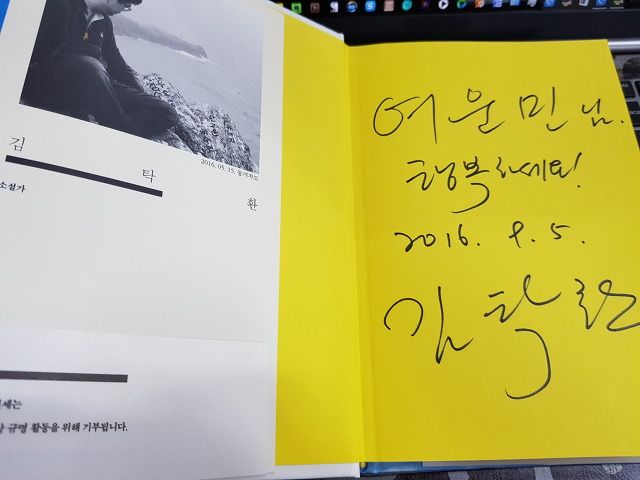 2016. 05. 15. 동거차도
김
탁
환
소설가
세는
규명 활동을 위해 기부됩니다.
여운민 님.
행복하세요!
2016. 9. 5.
김탁환